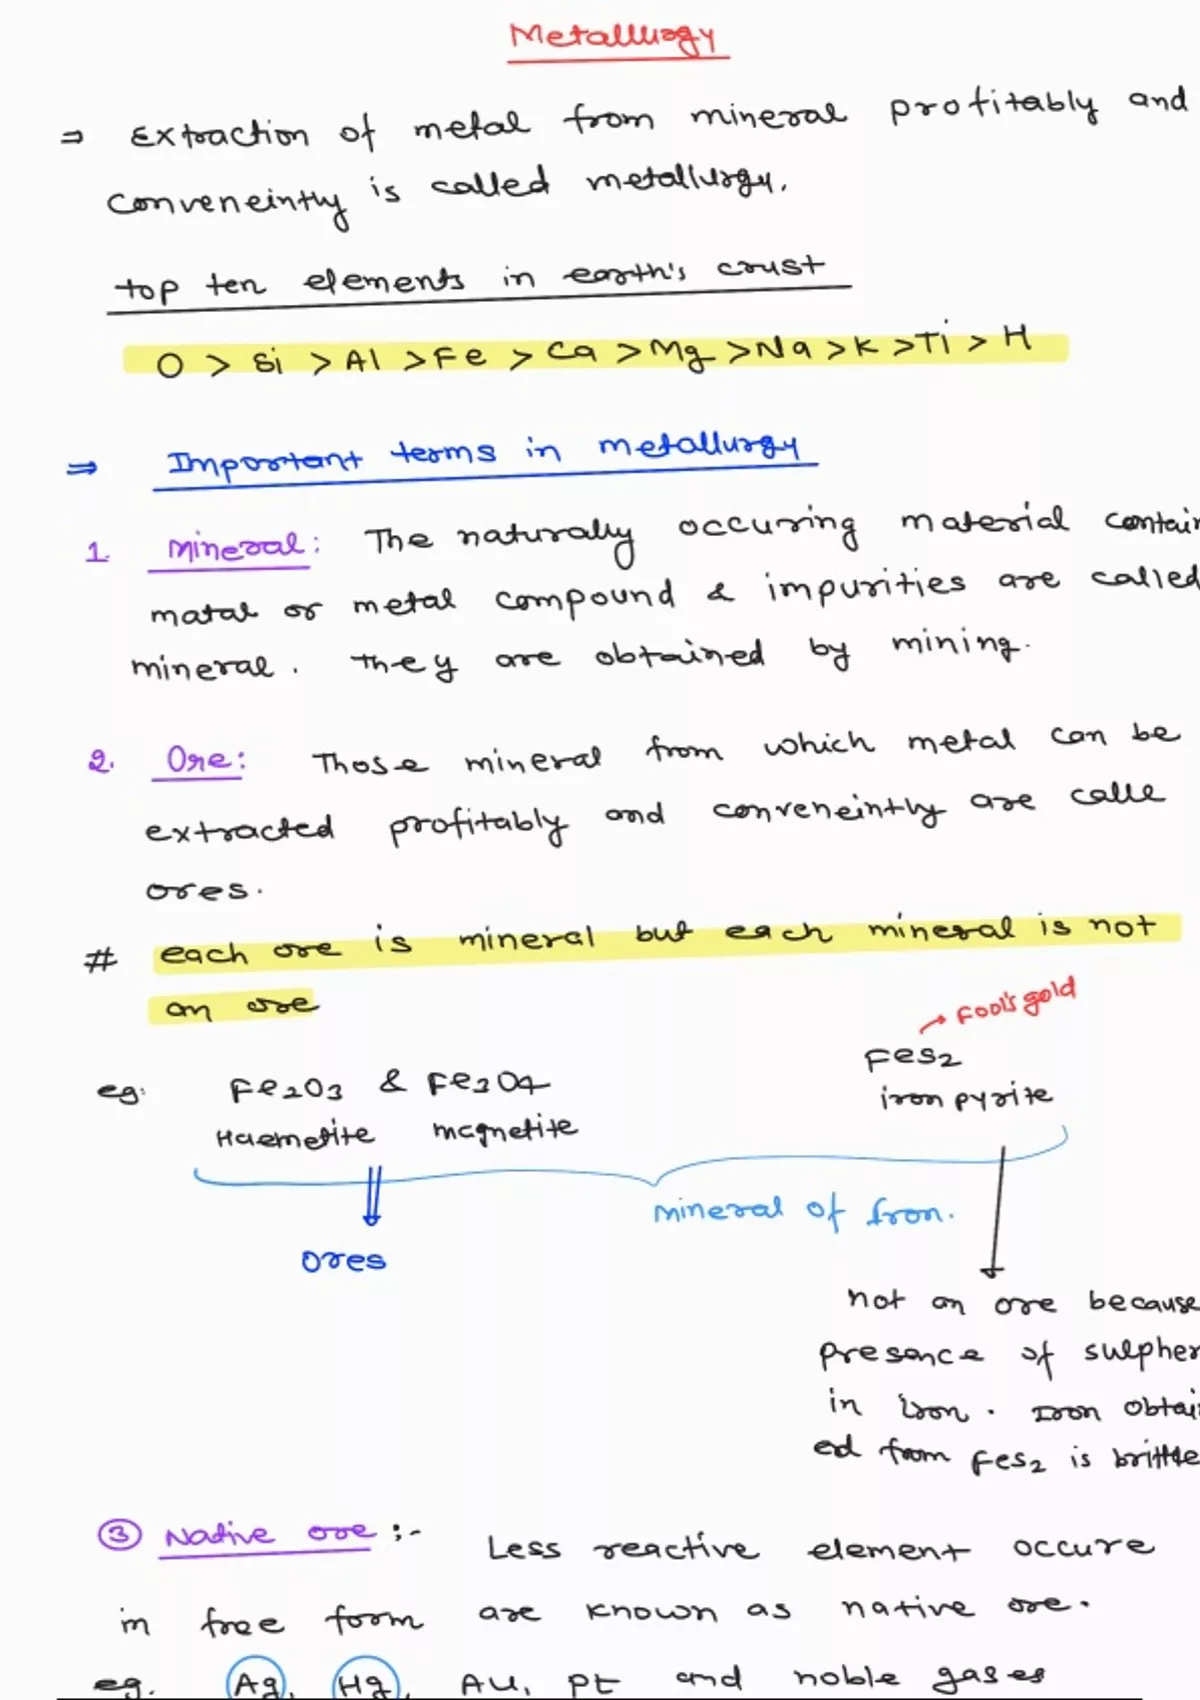 Metallurgy
⇒ Extraction of metal from mineral profitably and
conveneintly is called metallurgy.
top ten elements in earth's crust
O > Si > Al > Fe > Ca > Mg > Na > K > Ti > H
⇒ Important terms in metallurgy
1. Mineral: The naturally occuring material contain
matal or metal compound & impurities are called
mineral. They are obtained by mining.
2. Ore: Those mineral from which metal can be
extracted profitably and conveneintly are calle
ores.
# each ore is mineral but each mineral is not
an ore
→ Fool's gold
eg: Fe2O3 & Fe3O4 FeS2
Haemetite magnetite iron pyrite
mineral of Iron.
ores
not an ore because
presence of sulpher
in iron. Iron obtai
ed from FeS2 is brittle
③ Native ore :- Less reactive element occure
in free form are known as native ore.
eg. Ag, Hg, Au, Pt and noble gases